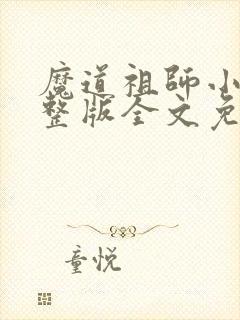 魔道祖師小
整版全文免
童悦